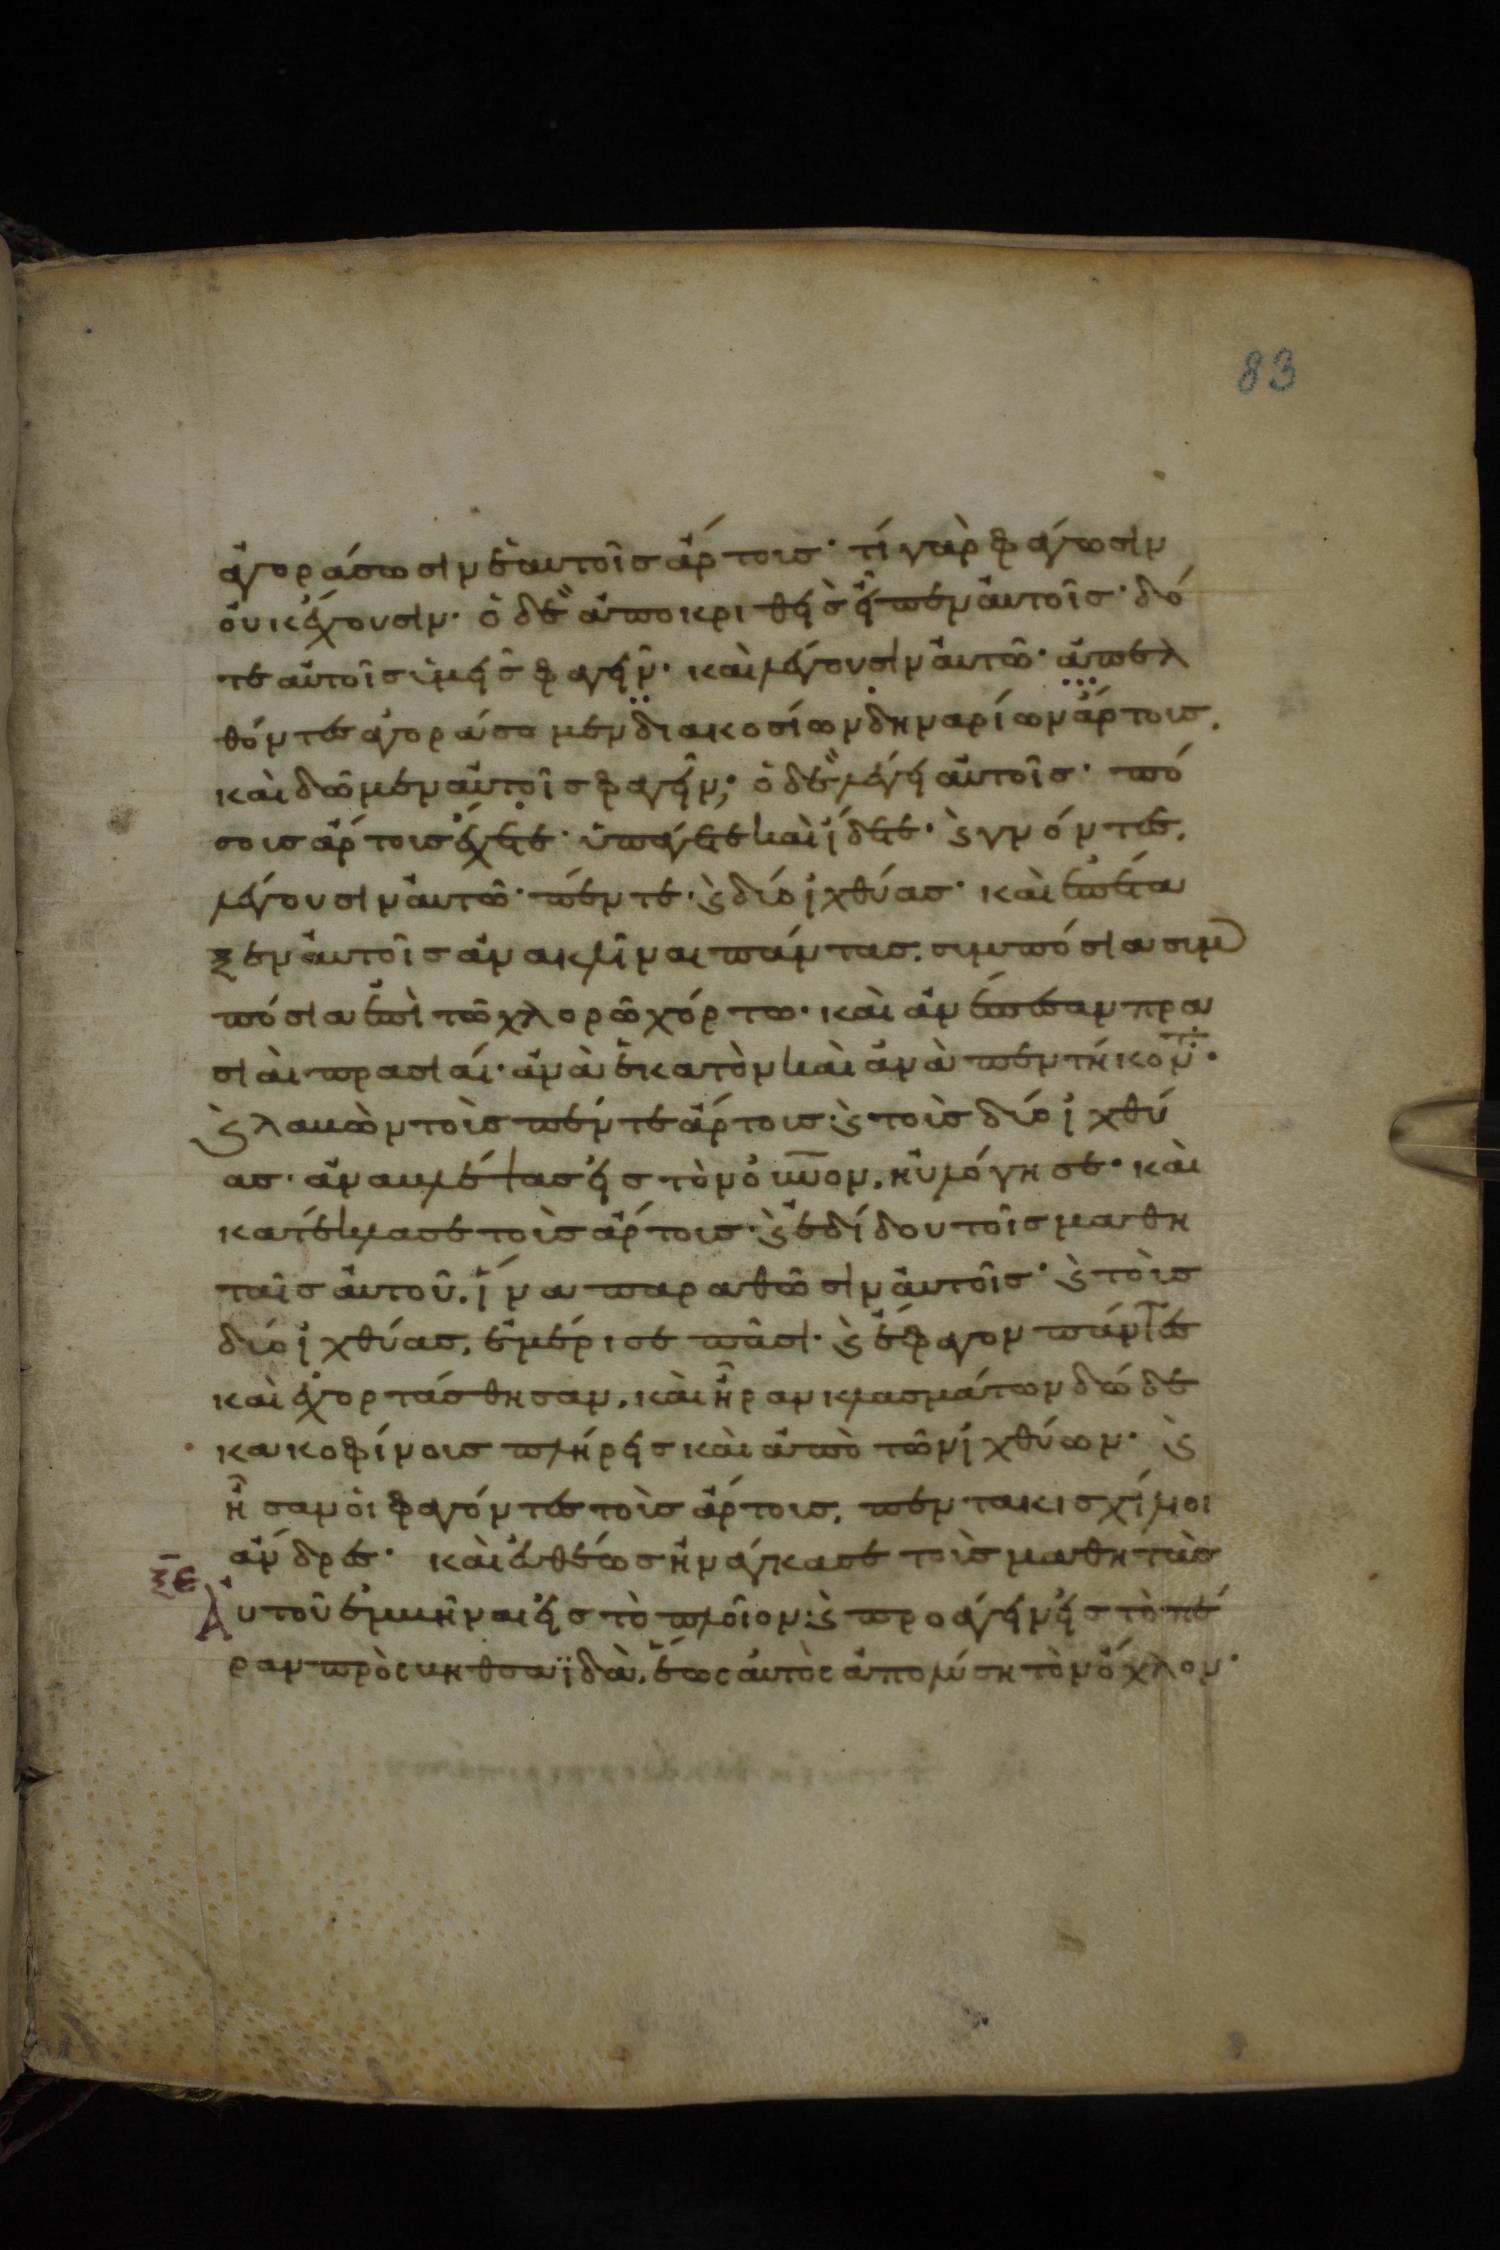 83
ἀγοράσωσιν ἑαυτοῖς ἄρτους· τί γὰρ φάγωσιν
οὐκ ἔχουσιν· ὁ δὲ ἀποκριθεὶς εἶπεν αὐτοῖς· δό
τε αὐτοῖς ὑμεῖς φαγεῖν· καὶ λέγουσιν αὐτῶ· ἀπελ
θόντες ἀγοράσομεν διακοσίων δηναρίων ἄρτους.
καὶ δῶμεν αὐτοῖς φαγεῖν; ὁ δὲ λέγει αὐτοῖς· πό
σους ἄρτους ἔχετε· ὑπάγετε καὶ ἴδετε· ϛ γνόντες.
λέγουσιν αὐτῶ· πέντε· ϛ δύο ἰχθύας· καὶ ἐπέτα
ξεν αὐτοῖς ἀνακλῖναι πάντας. συμπόσια συμ
πόσια ἐπὶ τῶ χλορῶ χόρτω· καὶ ἀνέπεσαν πρα
σιαὶ πρασιαί· ἀνὰ ἑκατὸν καὶ ἀνὰ πεντήκοντ·
ϛ λαβὼν τοὺς πέντε ἄρτους· ϛ τοὺς δύο ἰχθύ
ας· ἀναβλέψας εἰς τὸν οὐνον, ηὐλόγησε· καὶ
κατέκλασε τοὺς ἄρτους· ϛ ἐδίδου τοῖς μαθη
ταῖς αὐτοῦ. ἵνα παραθῶσιν αὐτοῖς· ϛ τοὺς
δύο ἰχθύας, ἐμέρισε πᾶσι· ϛ ἔφαγον πάντες
καὶ ἐχορτάσθησαν. καὶ ἦραν κλασμάτων δώδε
κα κοφίνους πλήρεις καὶ ἀπὸ τῶν ἰχθύων· ϛ
ἦσαν οἱ φαγόντες τοὺς ἄρτους, πεντακισχίλιοι
ἄνδρες· καὶ εὐθέως ἠνάγκασε τοὺς μαθητὰς
ξε Αὐτοῦ ἐμβῆναι εἰς τὸ πλοῖον· ϛ προάγειν εἰς τὸ πέ
ραν πρὸς βηθσαϊδὰ, ἕως αὐτὸς ἀπολύση τὸν ὄχλον·